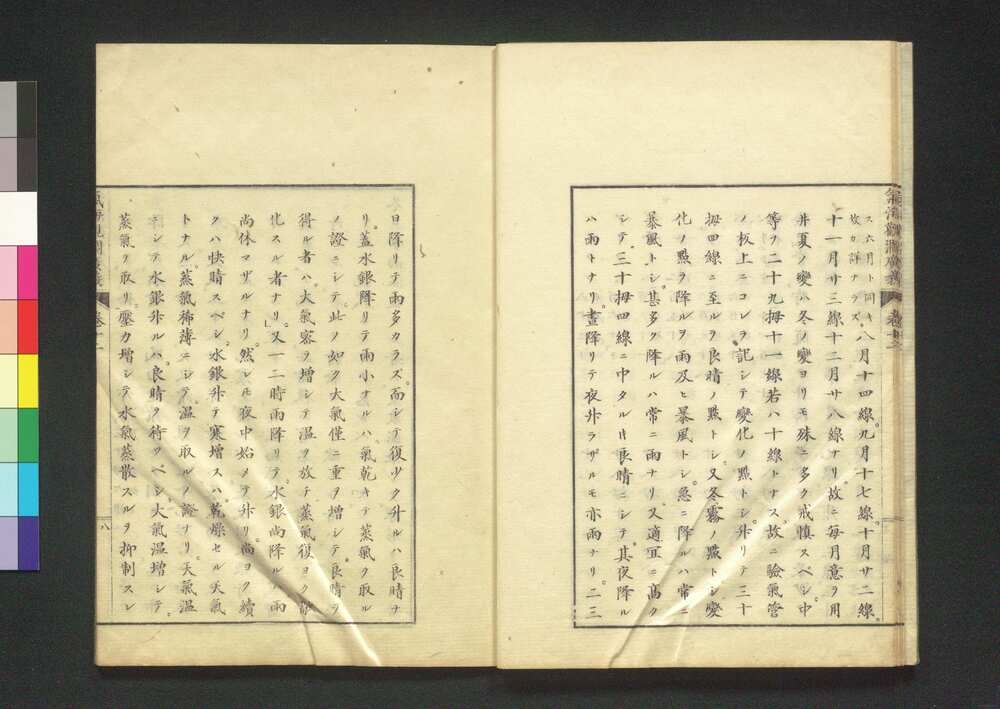 ス六月ト同キ八月十四線。九月十七線。十月廿二線。
故カ詳ナラズ
十一月廿三線十二月廿八線ナリ故ニ毎月意ヲ用
井夏ノ變ハ冬ノ變ヨリモ殊ニ多ク戒慎スベシ中
等ヲ二十九拇十一線若ハ十線トナス故ニ驗氣管
ノ板上ニコレヲ記シテ變化ノ點トシ升リテ三十
拇四線ニ至ルヲ良晴ノ點トシ又冬霧ノ點トシ變
化ノ點ヲ降ルヲ雨及ヒ暴風トシ急ニ降ルハ常ニ
暴風トシ甚多ク降ルハ常ニ雨ナリ又適宜ニ高ク
シテ三十拇四線ニ中タルは良晴ニシテ其夜降ル
ハ雨トナリ晝降リテ夜升ラザルモ亦雨ナリ。二三
氣海觀瀾廣義 卷十三
日降リテ雨多カラズ而シテ復少ク升ルハ良晴ナ
リ蓋水銀降リテ雨小ナルハ氣乾キテ蒸氣ヲ取ル
ノ證ニシテ此ノ如ク大氣僅ニ重ヲ増シテ良晴ヲ
得ル者ハ大氣容ヲ増シテ温ヲ放テ蒸氣復ヨク
化スル者ナリ又一二時雨降リテ水銀尚降ルハ雨
尚休マザルナリ然レモ夜中始メテ升リ尚ヨク續
クハ快晴スベシ水銀升テ寒増スハ乾燥セル天氣
トナル蒸氣稀薄ニシテ温ヲ取ルノ證ナリ天氣温
ニシテ水銀升ルハ良晴ク待ツベシ大氣温増シテ
蒸氣ヲ取リ壓力増シテ水氣蒸散スルヲ抑制スレ
八